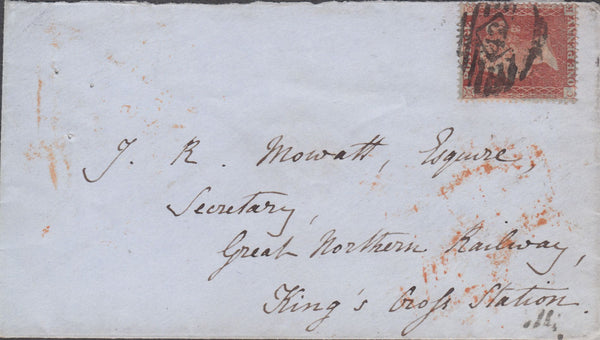 J. R. Mowatt, Esquire,
Secretary,
Great Northern Railway,
King's Cross Station
ONE PENNY